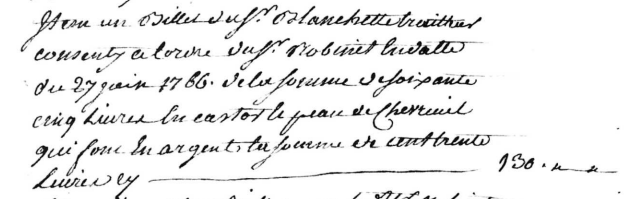 Item un Billet du Sr. Blanchette traitteur
consenty a lordre du Sr. Robinet En datte
du 27 juin 1766. de la somme de soixante
cinq Livres En castor Le peau de Chevreuil
qui font En argent la somme de cent trente
Livres cy 130. " "